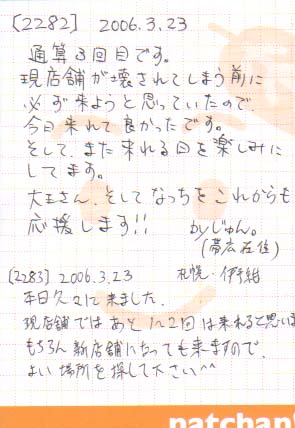 [2282] 2006.3.23
通算3回目です。
現店舗が壊されてしまう前に
必ず来ようと思っていたので、
今日来れて良かったです。
そして、また来れる日を楽しみに
してます。
大王さん、そしてなっちをこれからも
応援します!! かじゅん。
(帯広在住)
[2283] 2006.3.23 札幌・伊
本日久々に来ました。
現店舗ではあと1〜2回は来れると思いま
もちろん新店舗になっても来ますので、
よい場所を探して下さい^^
patchan